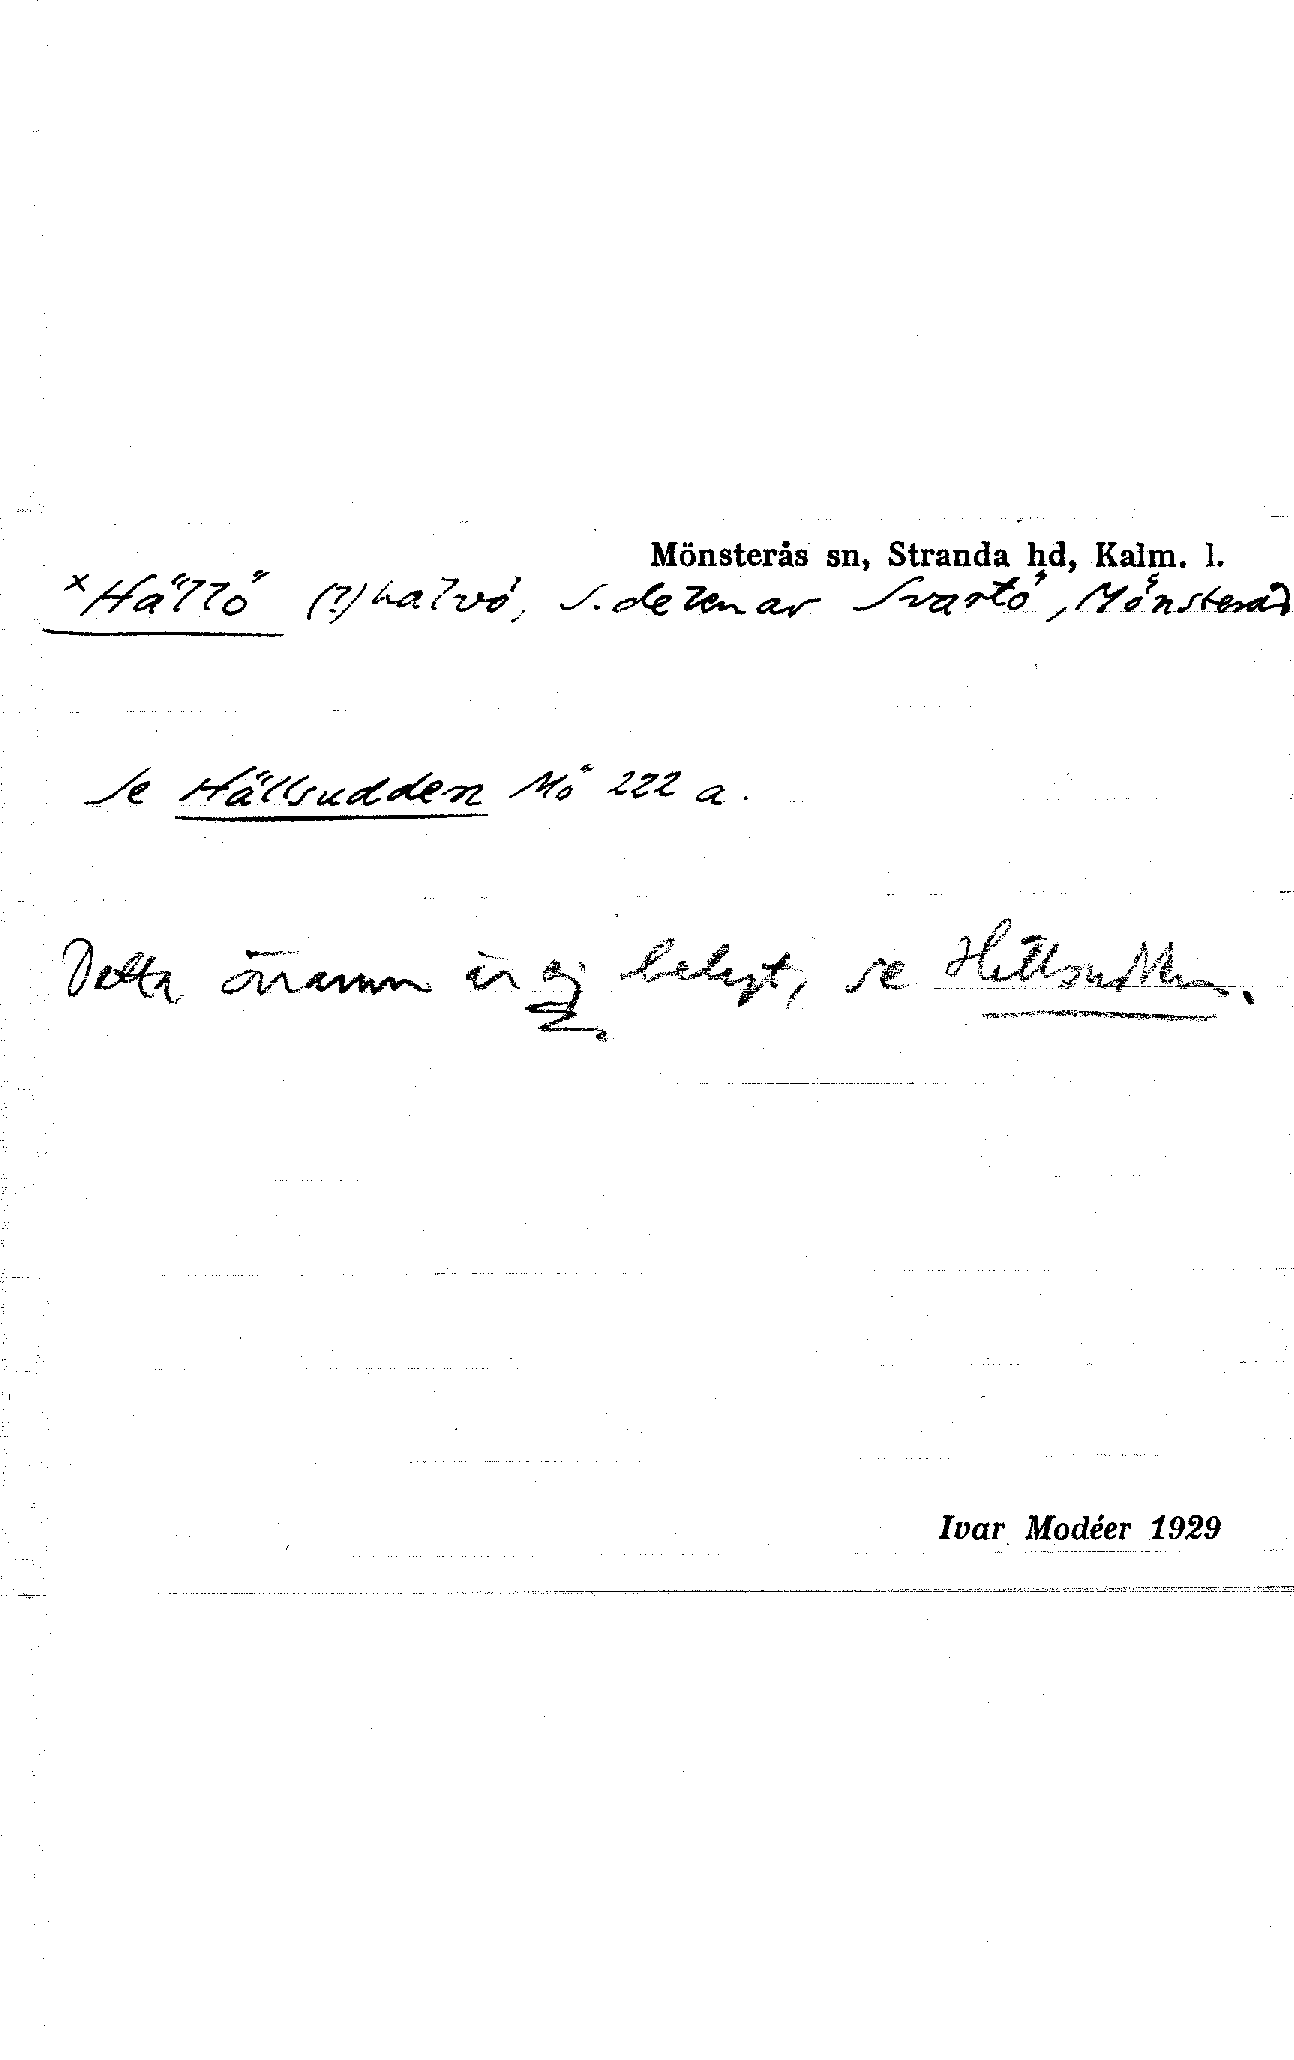 Mönsterås sn, Stranda hd, Kalm. l.
×Hällö (?) halvö, S. delen av Svartö, Mönsterås
Se Hällsudden Mö 222 a.
Detta önamn är ej belagt, se Hällsudden.
Ivar Modéer 1929